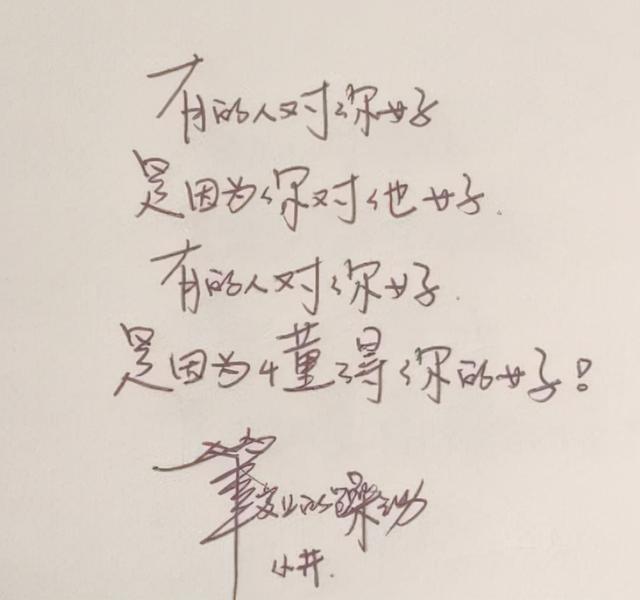 有的人对你好
是因为你对他好.
有的人对你好.
是因为懂得你的好!
的躁动
小井.